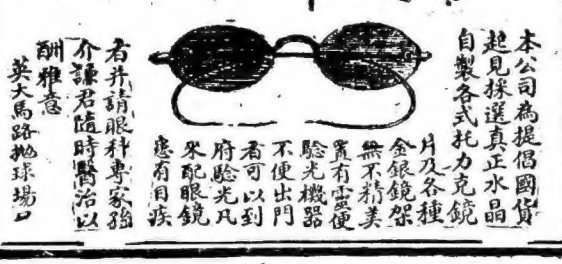 本公司為提倡國貨
起見採選真正水晶
自製各式托力克鏡
片及各種
金銀鏡架
無不精美
置有靈便
驗光機器
不便出門
者可以到
府驗光凡
來配眼鏡
患有目疾
者并請眼科專家孫
介謙君隨時醫治以
酬雅意
英大馬路抛球場口